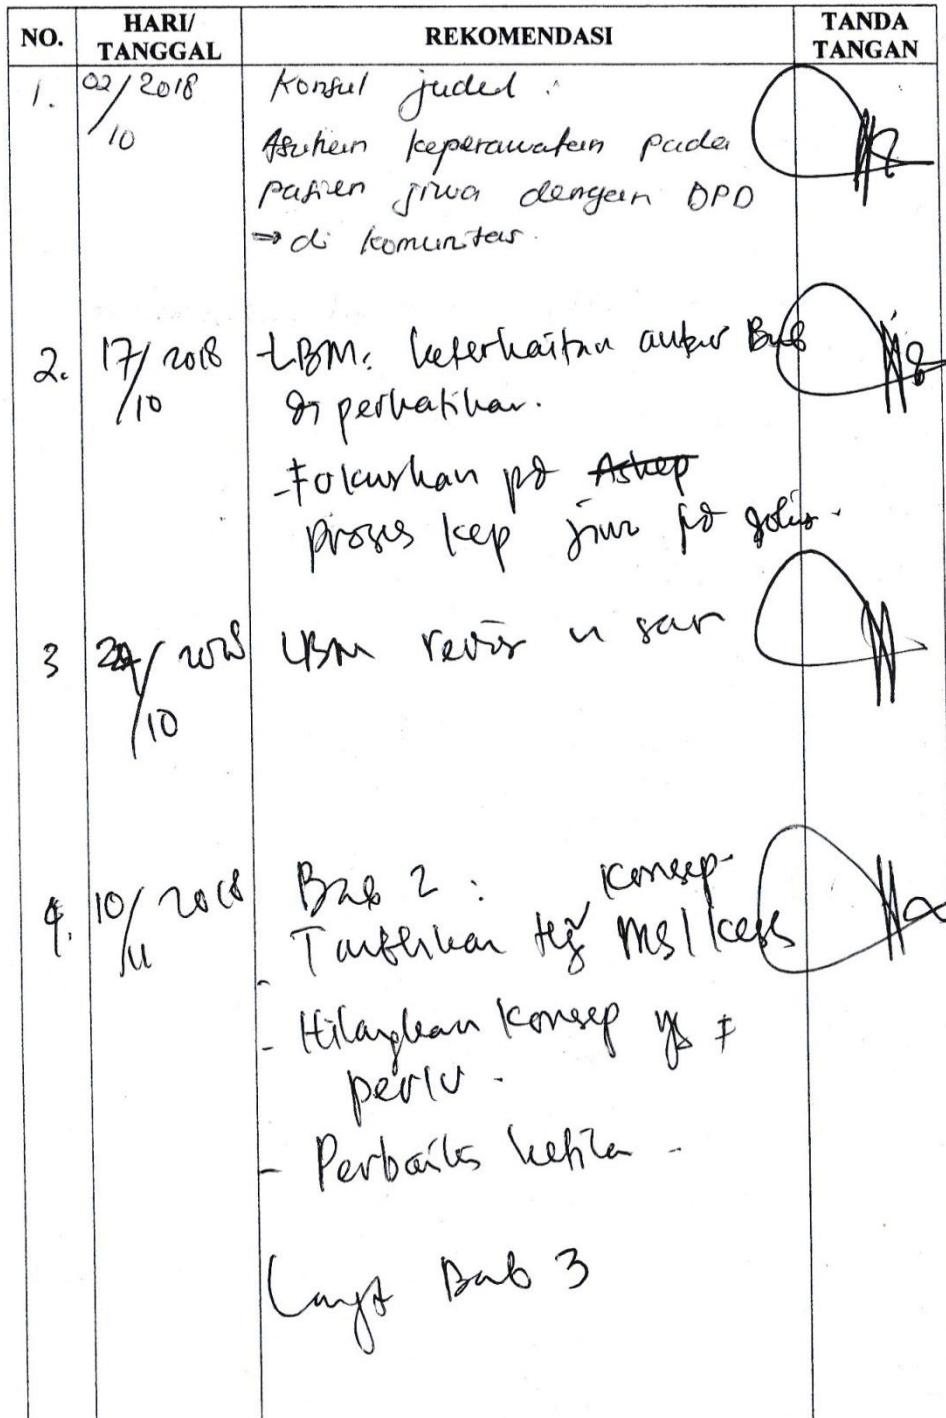 NO.
HARI/
TANGGAL
REKOMENDASI
TANDA
TANGAN
1.
02/2018
/10
Konsul judul :
Asuhan keperawatan pada
pasien jiwa dengan DPD
⇒ di komunitas.
2.
17/2018
/10
- LBM: keterkaitan antar Bab
di perhatikan.
- Fokuskan pd Askep
proses kep jiwa pd
3
24/2018
/10
LBM revisi
4.
10/2018
/11
Bab 2 :
konsep
- Tambahkan ttg
- Hilangkan konsep yg ≠
perlu.
- Perbaiki
Bab 3